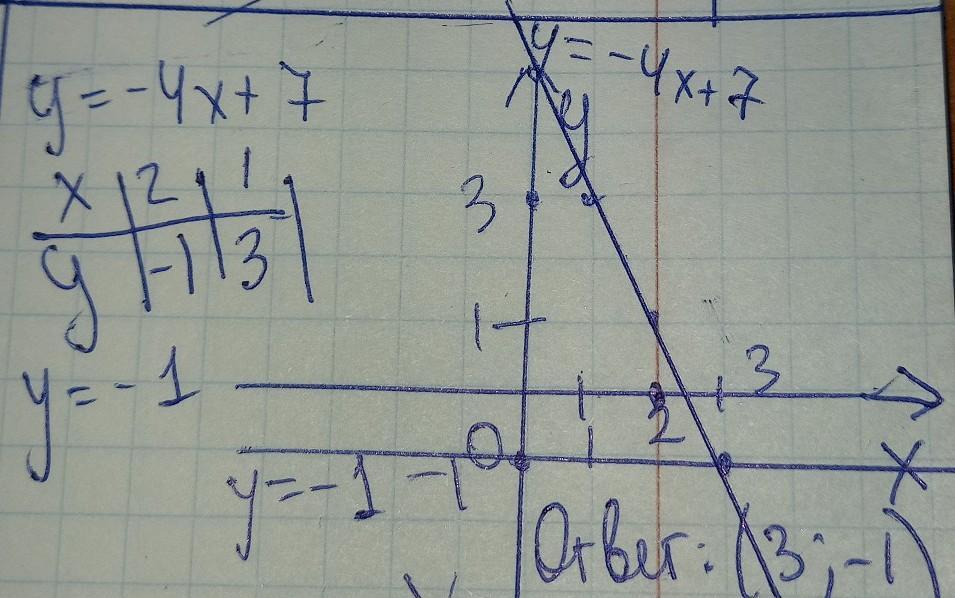 y = -4x + 7
x | 2 | 1
y | -1 | 3
y = -1
y = -4x + 7
y
3
1
1 2 3
0
1
x
y = -1 -1
Ответ: (3; -1)